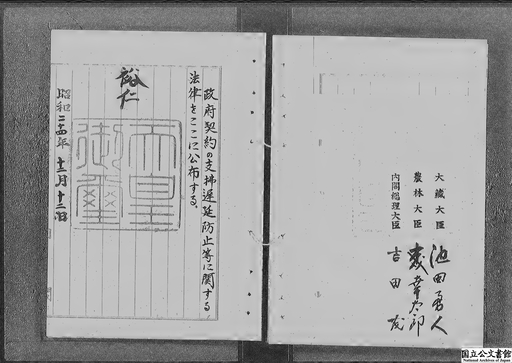 政府契約の支拂遅延防止等に関する
法律をここに公布する。
裕仁
天皇
御璽
昭和二十四年十二月十二日
大藏大臣 池田勇人
農林大臣 森幸太郎
内閣総理大臣 吉田茂
国立公文書館
National Archives of Japan